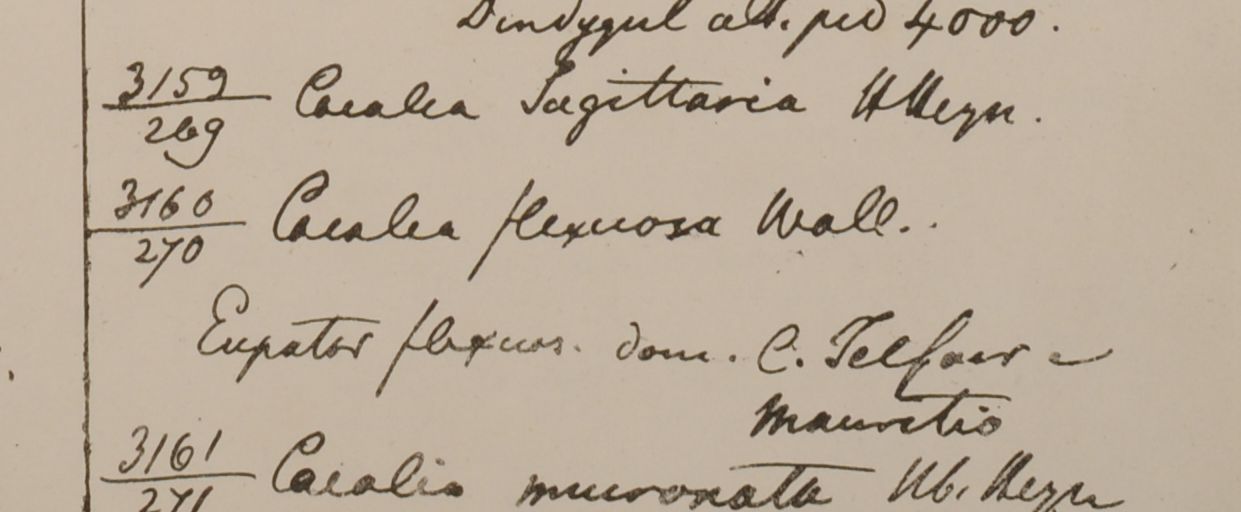 Dindygul alt. ped 4000.
3159 Cacalea Sagittaria HHeyn.
269
3160 Cacalea flexuosa Wall.
270
Eupator flexuos. dom. C. Telfair e
Mauritio
3161 Cacalia mucronata Hb. Heyn
271